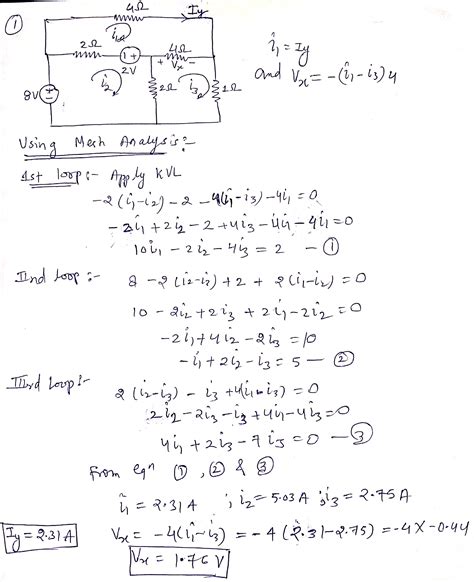 ①
4Ω
Iy
i₁
2Ω
1+
4Ω
+ Vx -
2V
i₂
2Ω
i₃
1Ω
8V
i₁ = Iy
and Vx = -(i₁ - i₃) 4
Using Mesh Analysis:-
1st loop:- Apply KVL
-2(i₁-i₂) - 2 - 4(i₁-i₃) - 4i₁ = 0
-2i₁ + 2i₂ - 2 + 4i₃ - 4i₁ - 4i₁ = 0
10i₁ - 2i₂ - 4i₃ = 2 - ①
IInd loop:- 8 - 2(i₂-i₃) + 2 + 2(i₁-i₂) = 0
10 - 2i₂ + 2i₃ + 2i₁ - 2i₂ = 0
-2i₁ + 4i₂ - 2i₃ = 10
-i₁ + 2i₂ - i₃ = 5 - ②
IIIrd loop:- 2(i₂-i₃) - i₃ + 4(i₁-i₃) = 0
2i₂ - 2i₃ - i₃ + 4i₁ - 4i₃ = 0
4i₁ + 2i₂ - 7i₃ = 0 - ③
from eqn ①, ② & ③
i₁ = 2.31 A ; i₂ = 5.03 A ; i₃ = 2.75 A
Iy = 2.31 A
Vx = -4(i₁-i₃) = -4(2.31-2.75) = -4x-0.44
Vx = 1.76 V